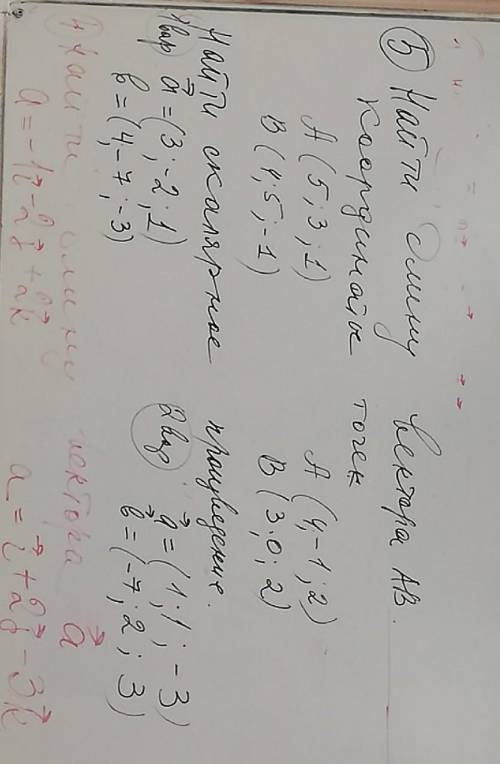 ⑤ Найти длину вектора AB.
координаты точек
A (5; 3; 1) A (4; -1; 2)
B (4; 5; -1) B (3; 0; 2)
Найти скалярное произведение.
1вар a⃗ = (3; -2; 1) 2вар a⃗ = (1; 1; -3)
b⃗ = (4; -7; -3) b⃗ = (-7; 2; 3)
Найти длину вектора a⃗
a = -1i⃗ - 2j⃗ + 2k⃗ a = i⃗ + 2j⃗ - 3k⃗